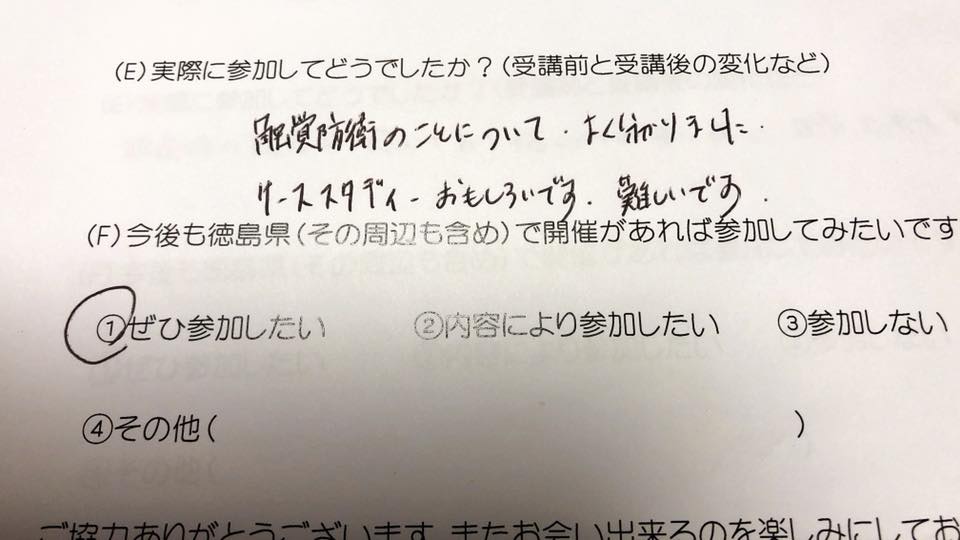 (E)実際に参加してどうでしたか？(受講前と受講後の変化など)
融覚防衛のことについて．よく分かりました．
ケーススタディーおもしろいです．難しいです．
(F)今後も徳島県(その周辺も含め)で開催があれば参加してみたいです
①ぜひ参加したい ②内容により参加したい ③参加しない
④その他( )
ご協力ありがとうございます。またお会い出来るのを楽しみにしてお